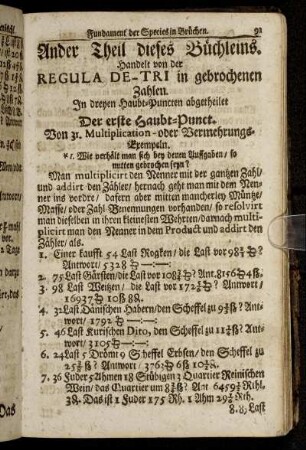 Fundament der Species in Brüchen. 91
Ander Theil dieses Büchleins.
Handelt von der
REGULA DE-TRI in gebrochenen
Zahlen.
In dreyen Haubt-Puncten abgetheilet
Der erste Haubt-Punct.
Von 31. Multiplication-oder Vermehrungs-
Exempeln.
Wie verhält man sich bey denen Auffgaben / so
mitten gebrochen seyn?
Man multiplicirt den Nenner mit der gantzen Zahl/
und addirt den Zähler/ hernach geht man mit dem Nen-
ner ins vordre / dafern aber mitten mancherley Müntze/
Masse/ oder Zahl-Benennungen vorhanden/ so resolvirt
man dieselben in ihren kleinsten Wehrten/ darnach multi-
plicirt man den Nenner in dem Product und addirt den
Zähler/ als.
1. Einer kaufft 54 Last Rogken / die Last vor
Antwort / 5328
2. 75 Last Gärsten/ die Last vor Ant. 8156
3. 98 Last Weitzen / die Last vor Antwort /
16937
4. 32 Last Dänischen Habern/ den Scheffel zu Ant-
wort / 1792
5. 46 Last Kurischen Dito, den Scheffel zu Ant-
wort / 3105
6. 24 Last 5 Drömt 9 Scheffel Erbsen / den Scheffel zu
Antwort / 376
7. 36 Fuder 5 Ahmen 18 Stübigen 3 Quartier Reinischen
Wein / das Quartier um Ant Rthl.
Das ist 1 Fuder 175 Rh. 1 Ahm
8. 8 Last